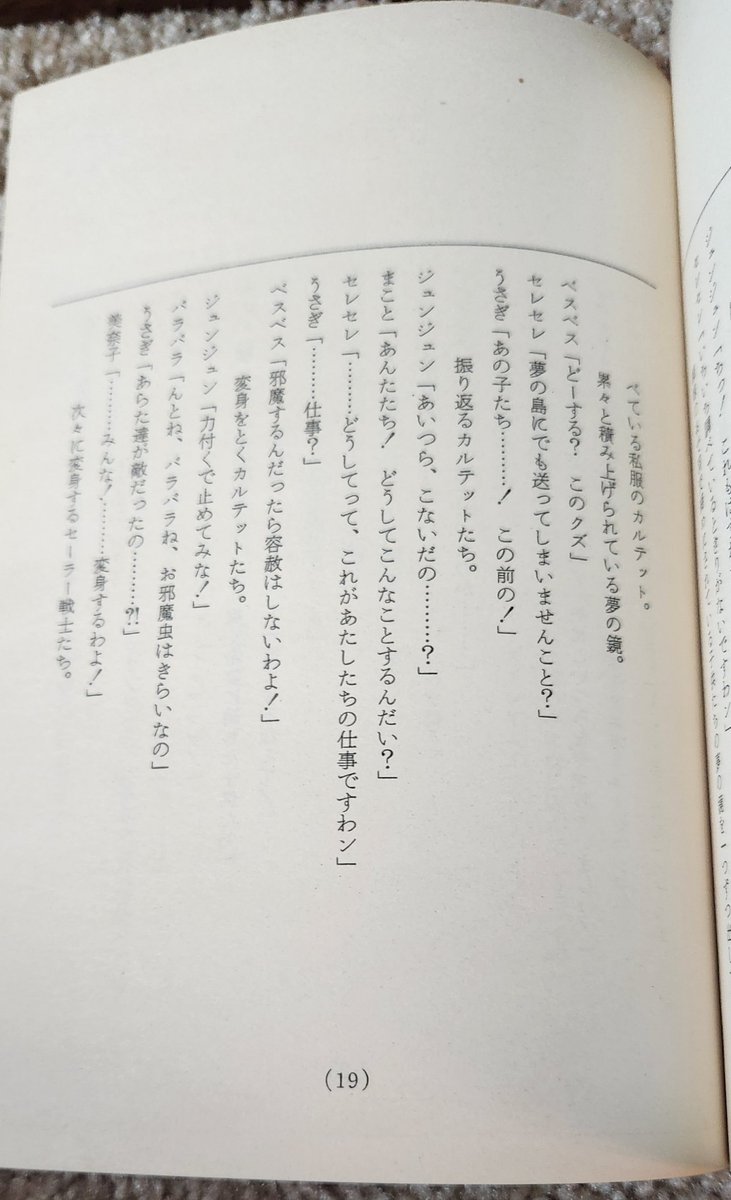 べている私服のカルテット。
累々と積み上げられている夢の鏡。
ベスベス「どーする？　このクズ」
セレセレ「夢の島にでも送ってしまいませんこと？」
うさぎ「あの子たち………！　この前の！」
振り返るカルテットたち。
ジュンジュン「あいつら、こないだの………？」
まこと「あんたたち！　どうしてこんなことするんだい？」
セレセレ「………どうしてって、これがあたしたちの仕事ですわン」
うさぎ「………仕事？」
ベスベス「邪魔するんだったら容赦はしないわよ！」
変身をとくカルテットたち。
ジュンジュン「力付くで止めてみな！」
パラパラ「んとね、パラパラね、お邪魔虫はきらいなの」
うさぎ「あらた達が敵だったの………?!」
美奈子「………みんな！………変身するわよ！」
次々に変身するセーラー戦士たち。
(19)